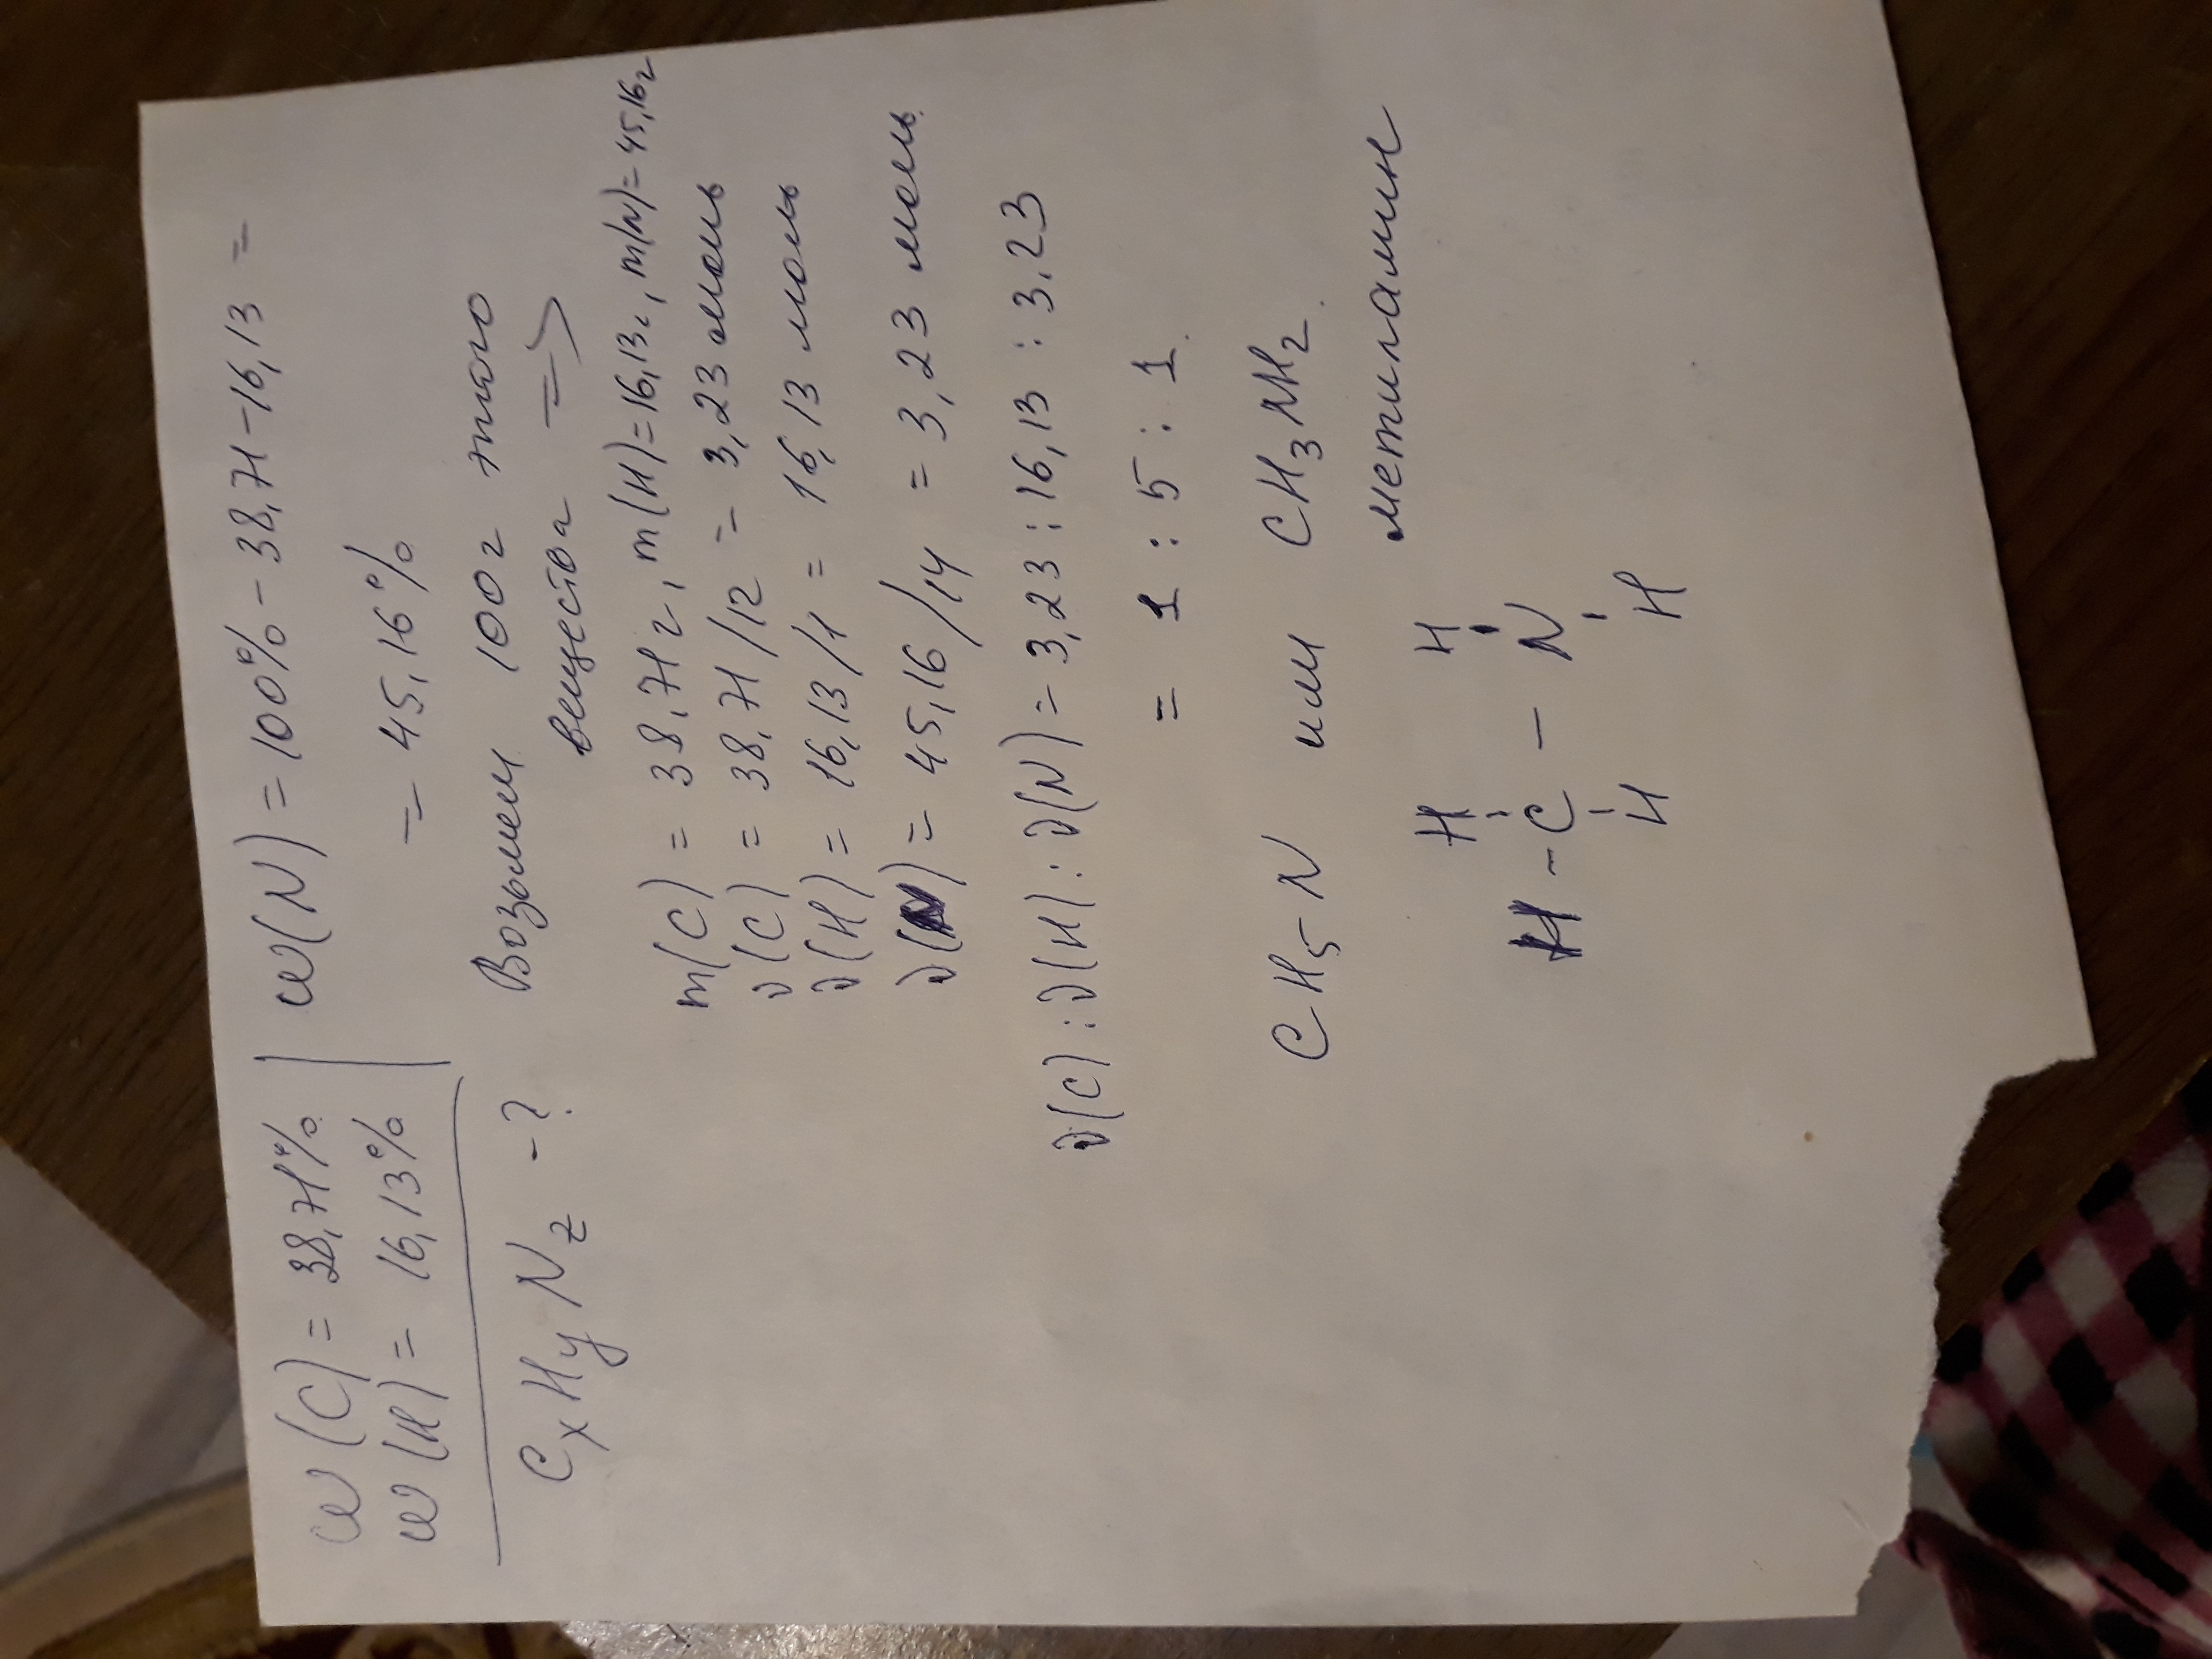 w(C) = 38,71%
w(H) = 16,13%
CxHyNz - ?
w(N) = 100% - 38,71 - 16,13 =
= 45,16%
Возьмем 100г этого
вещества =>
m(C) = 38,71г, m(H)=16,13г, m(N)=45,16г
ν(C) = 38,71/12 = 3,23 моль
ν(H) = 16,13/1 = 16,13 моль
ν(N) = 45,16/14 = 3,23 моль.
ν(C):ν(H):ν(N) = 3,23:16,13:3,23
= 1:5:1.
CH₅N или CH₃NH₂.
метиламин
H H
H - C - N
H H